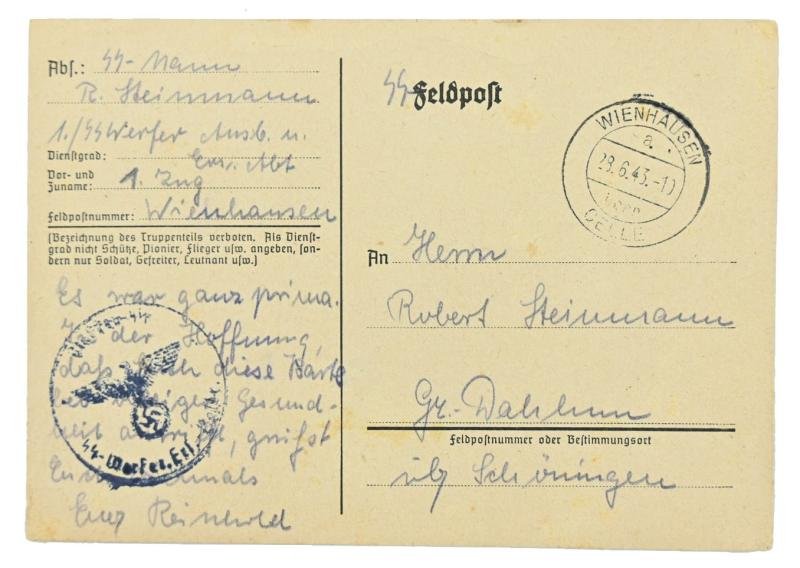 Abs.: SS-Mann
R. Steinmann
1./SS Werfer Ausb. u.
Dienstgrad: Ers. Abt
Vor- und
Zuname: 1. Zug
Feldpostnummer: Wienhausen
(Bezeichnung des Truppenteils verboten. Als Dienst-
grad nicht Schütze, Pionier, Flieger usw. angeben, son-
dern nur Soldat, Gefreiter, Leutnant usw.)
Es war ganz prima.
In der Hoffnung,
daß Euch diese Karte
bei Gesund-
heit antrifft, grüßt
Euch nochmals
Euer Reinhold
Waffen-SS
SS-Werfer.
SS Feldpost
WIENHAUSEN
a
28.6.43.-10
über
CELLE
An Herrn
Robert Steinmann
Gr.-Dahlum
Feldpostnummer oder Bestimmungsort
üb/ Schöningen